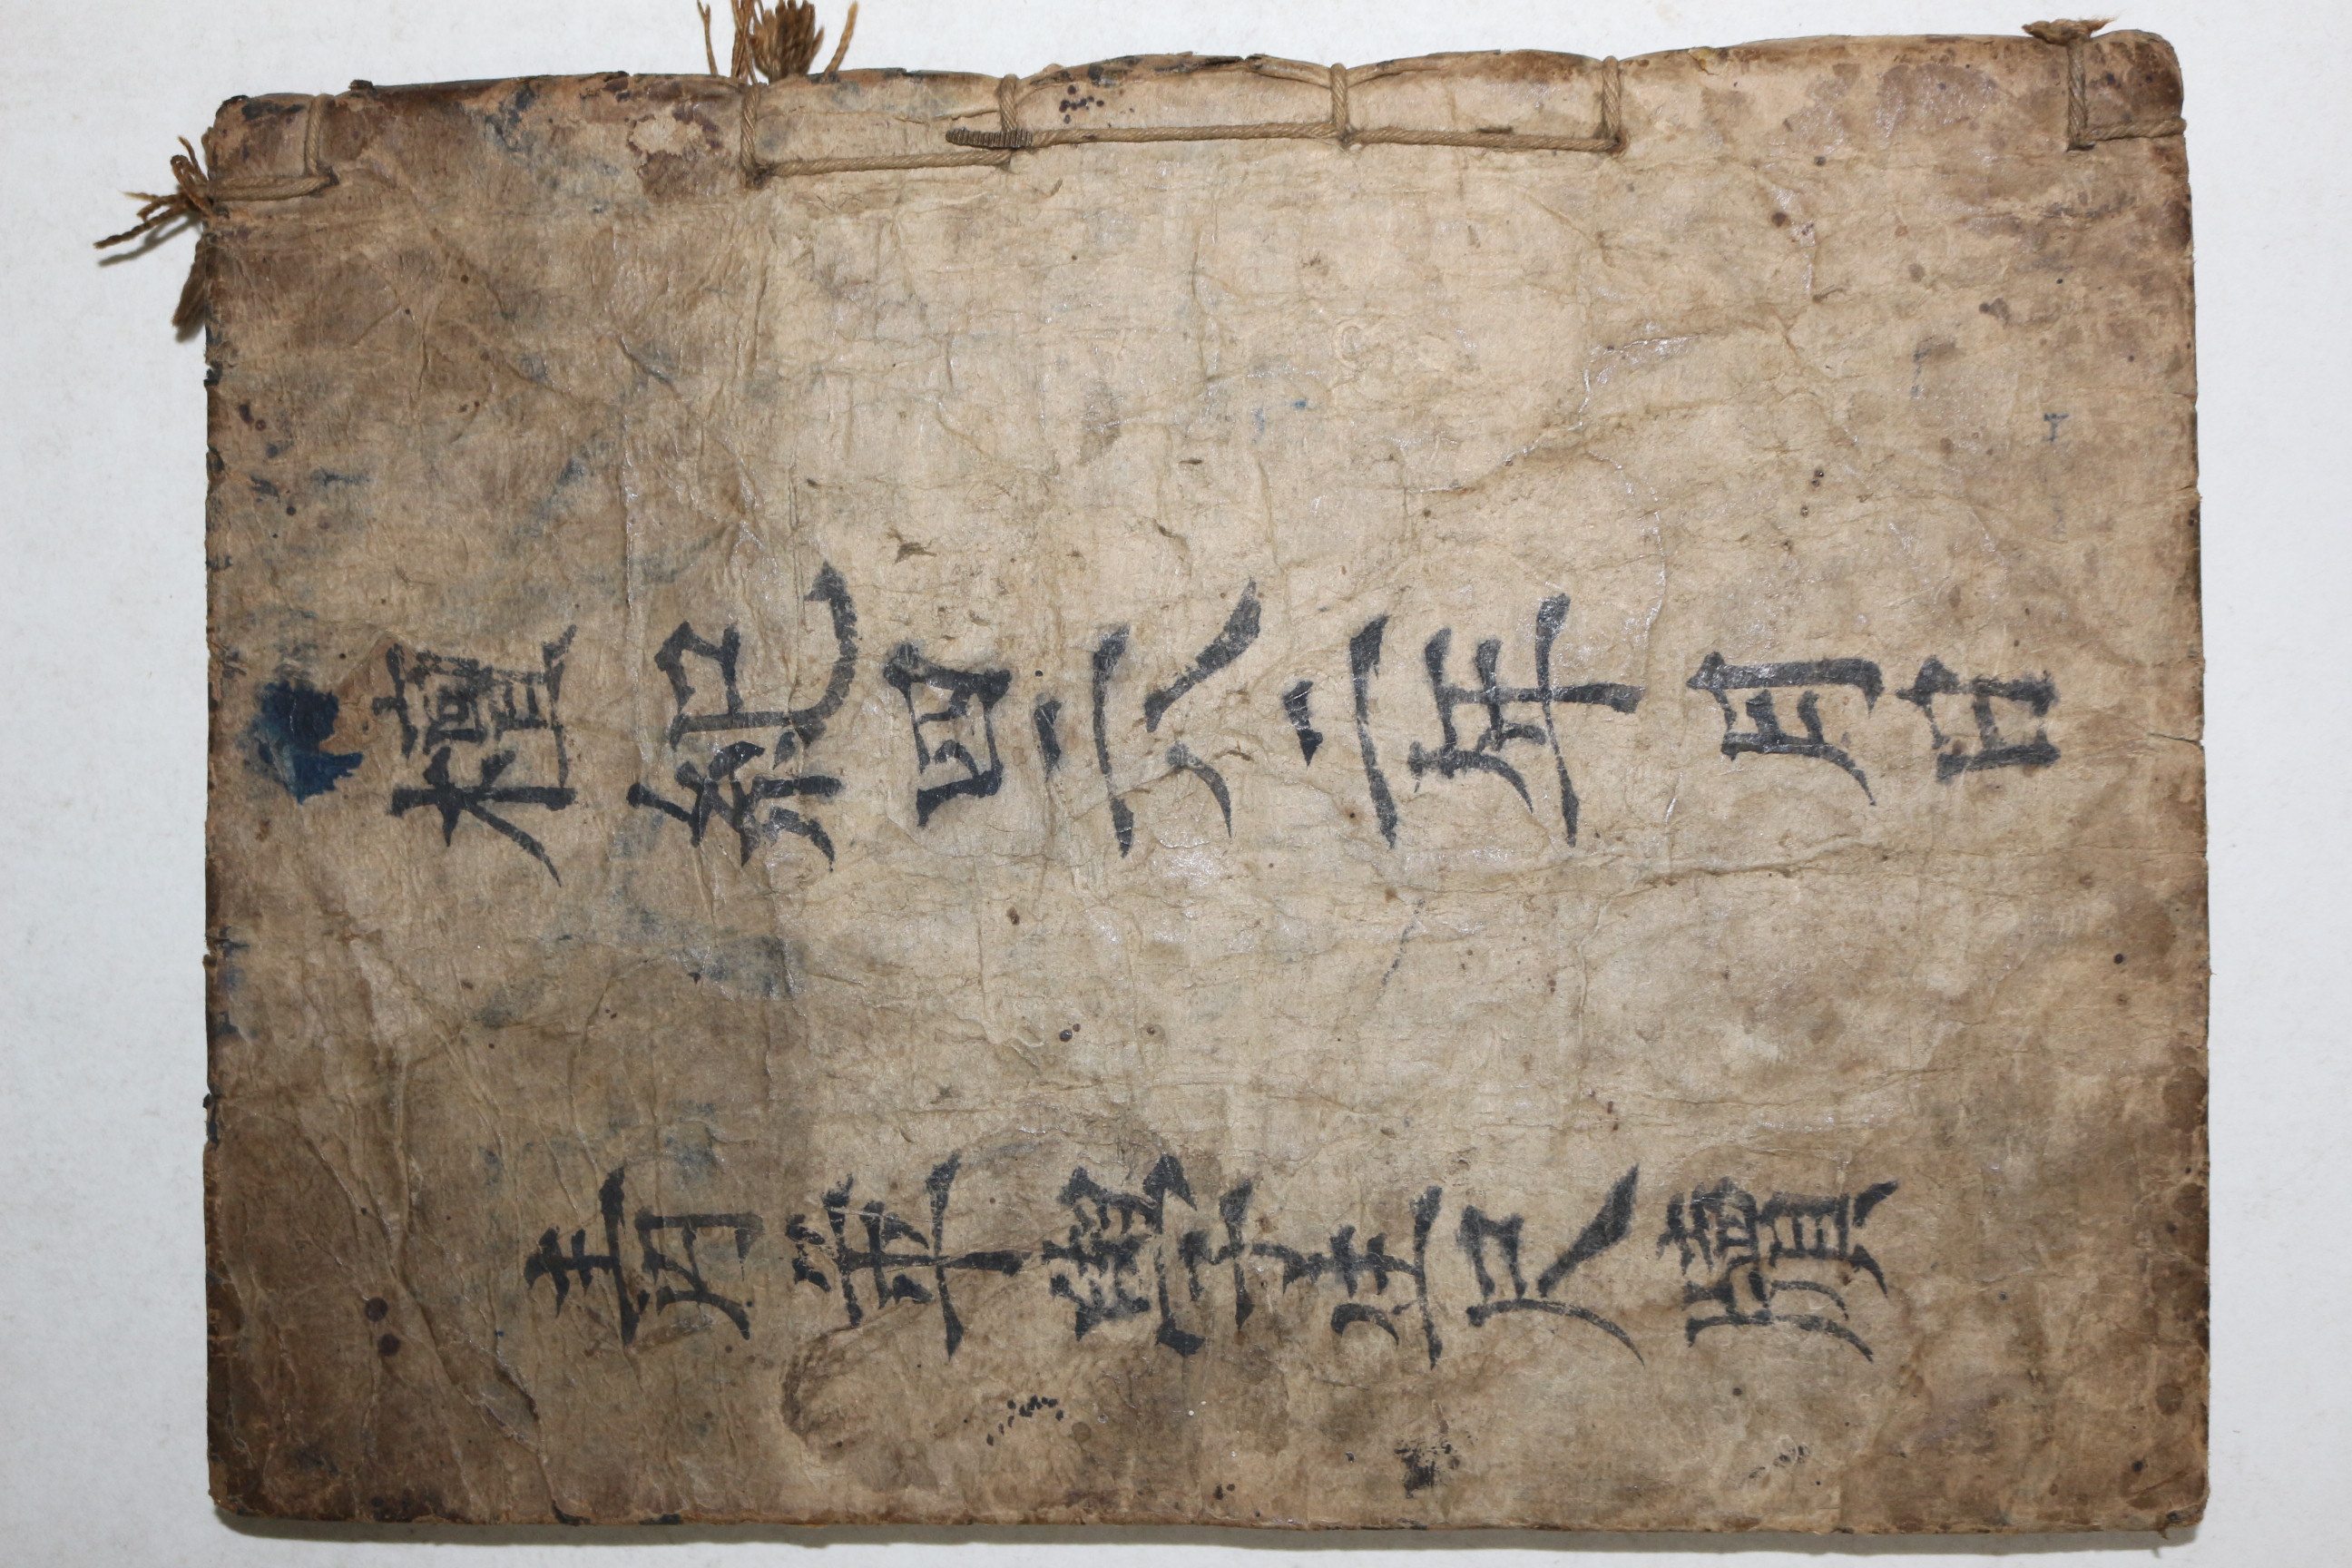 檀紀四二八二年月日
靑華學生尺牘